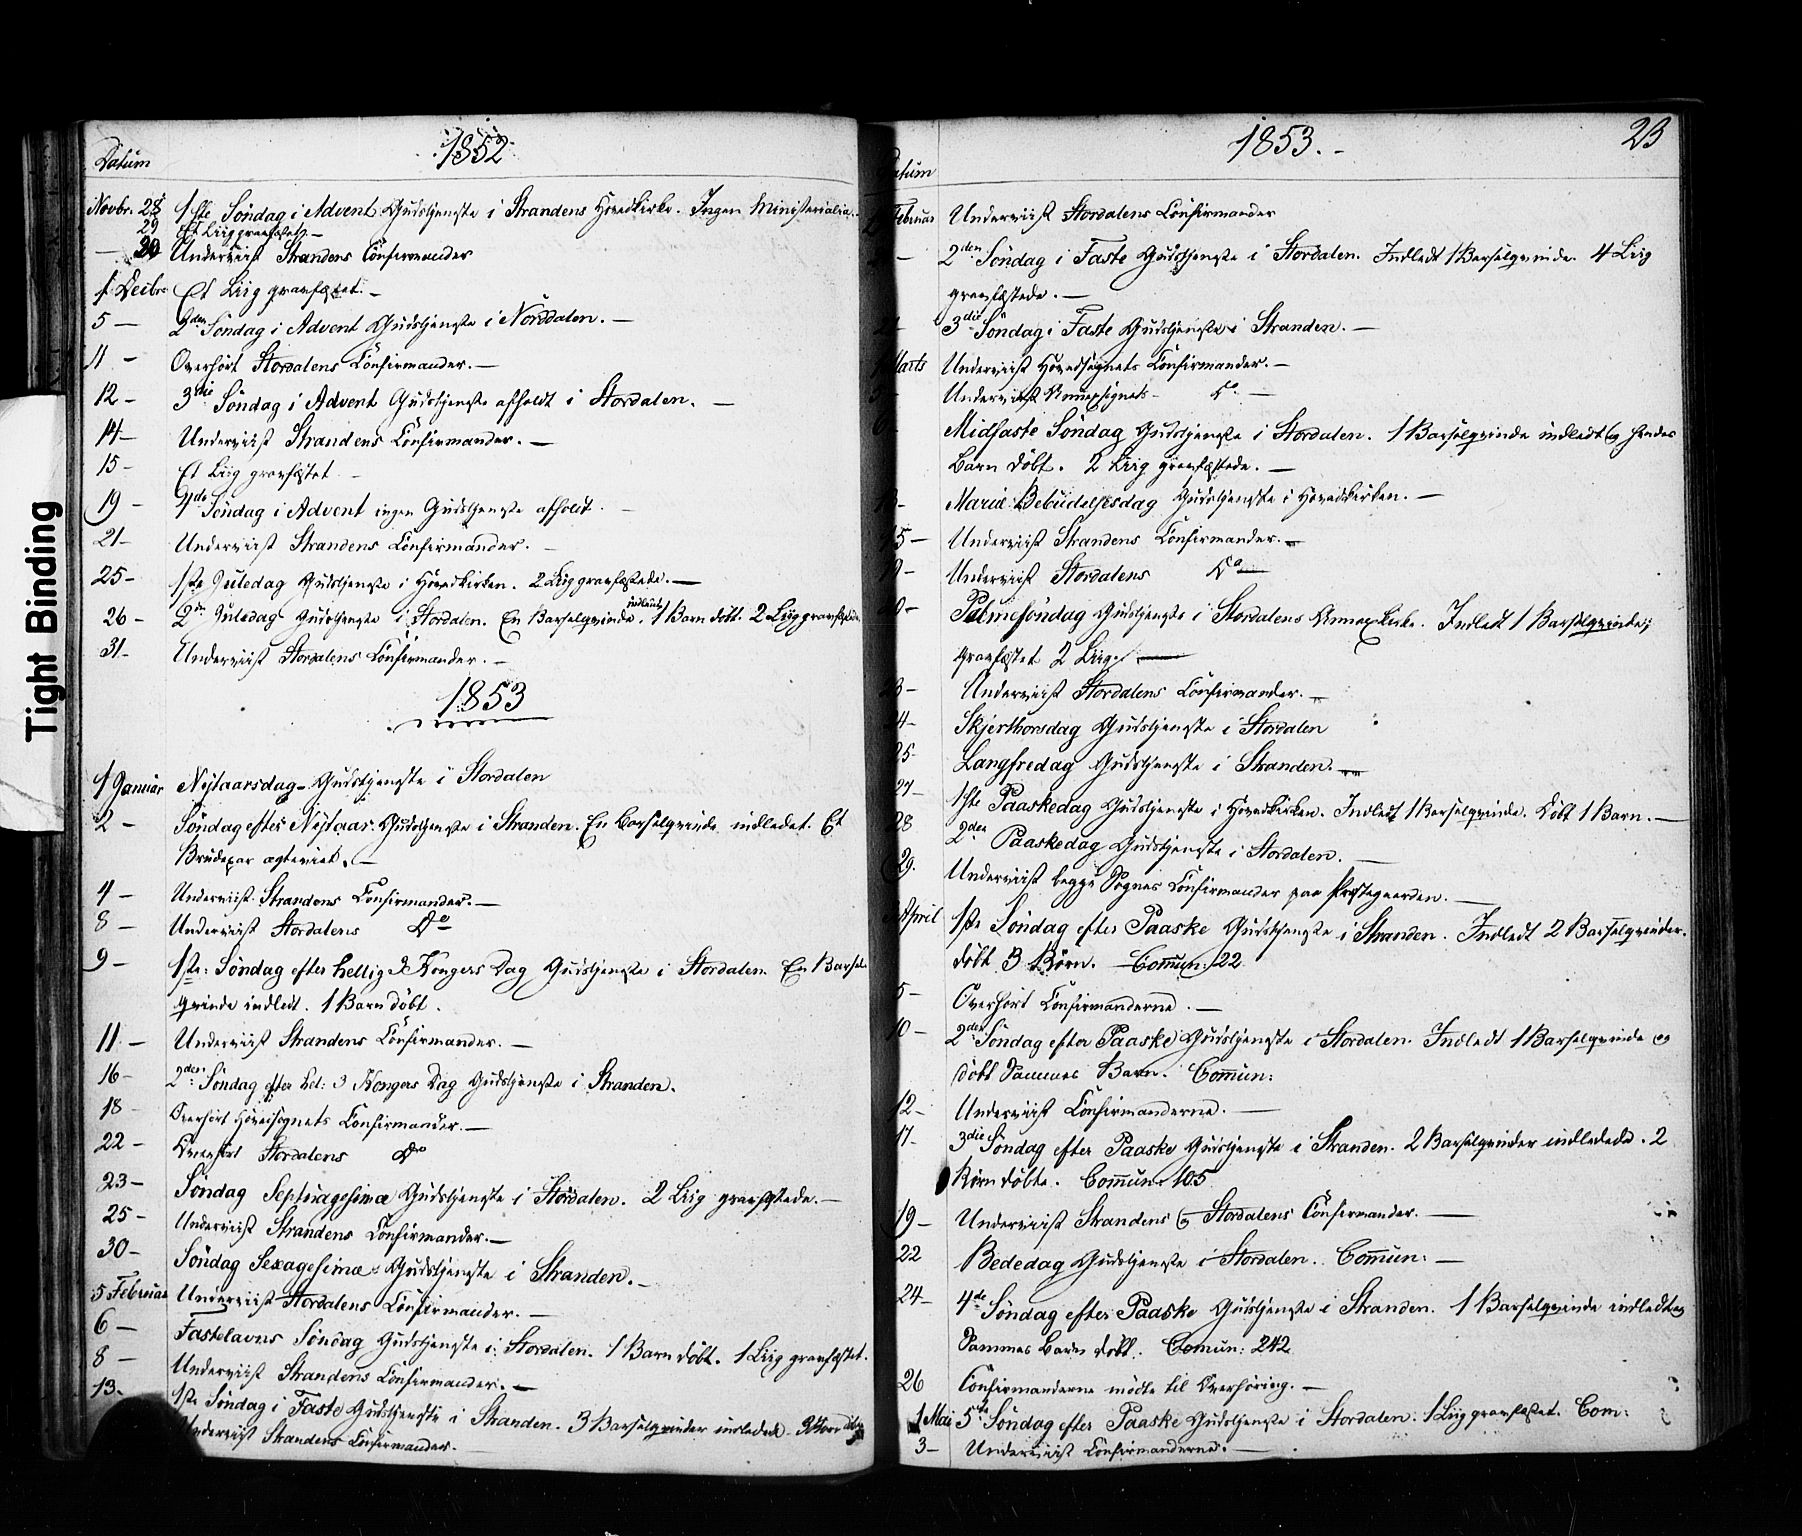 Tight Binding
1852
Datum
Novbr. 28 1ste Søndag i Advent Gudstjeneste i Strandens Hovedkirke. Ingen Ministerialia.
29 Et Liig gravfæstet. —
— 30 Underviist Strandens Confirmander
1 Decbr. Et Liig gravfæstet. —
5 — 2den Søndag i Advent Gudstjeneste i Norddalen. —
11 — Overhørt Stordalens Confirmander. —
12 — 3die Søndag i Advent Gudstjeneste afholdt i Stordalen. —
14 — Underviist Strandens Confirmander. —
15 — Et Liig gravfæstet —
19 — 4de Søndag i Advent ingen Gudstjeneste afholdt. —
21 — Underviist Strandens Confirmander. —
25 — 1ste Juledag Gudstjeneste i Hovedkirken. 2 Liig gravfæstede. —
26 — 2den Juledag Gudstjeneste i Stordalen. En Barselqvinde indledt. 1 Barn døbt. 2 Liig gravfæstede.
31 — Underviist Stordalens Confirmander. —
1853
1 Januar Nytaarsdag Gudstjeneste i Stordalen
2 — Søndag efter Nytaar Gudstjeneste i Stranden. En Barselqvinde indledet. Et
Brudepar ægteviet. —
4 — Underviist Strandens Confirmander. —
8 — Underviist Stordalens Do
9 — 1ste Søndag efter hellig 3 Kongers Dag Gudstjeneste i Stordalen. En Barsel-
qvinde indledt. 1 Barn døbt.
11. — Underviist Strandens Confirmander. —
16 — 2den Søndag efter hel: 3 Kongers Dag Gudstjeneste i Stranden.
18 — Overhørt Hovedsognets Confirmander. —
22 — Overhørt Stordalens Do
23 — Søndag Septuagesimæ Gudstjeneste i Stordalen. 2 Liig gravfæstede. —
25 — Underviist Strandens Confirmander. —
30 — Søndag Sexagesimæ Gudstjeneste i Stranden. —
5 Februar Underviist Stordalens Confirmander. —
6 — Fastelavns Søndag Gudstjeneste i Stordalen. 1 Barn døbt. 1 Liig gravfæstet.
8 — Underviist Strandens Confirmander. —
13. 1ste Søndag i Faste Gudstjeneste i Stranden. 3 Barselqvinder indledede. 3
Underviist Strandens Confirmander. —
1853. — 23
Datum
Februar Underviist Stordalens Confirmander
— 2den Søndag i Faste Gudstjeneste i Stordalen. Indledt 1 Barselqvinde. 4 Liig
gravfæstede. —
3die Søndag i Faste Gudstjeneste i Stranden. —
Marts Underviist Hovedsognets Confirmander. —
Underviist Annexsognets Do —
6 — Midfaste Søndag Gudstjeneste i Stordalen. 1 Barselqvinde indledt og hendes
Barn døbt. 2 Liig gravfæstede. —
Mariæ Bebudelsesdag Gudstjeneste i Hovedkirken. —
15 — Underviist Strandens Confirmander. —
Underviist Stordalens Do —
20 — Palmesøndag Gudstjeneste i Stordalens Annexkirke. Indledt 1 Barselqvinde;
gravfæstet 2 Liig. —
23 — Underviist Stordalens Confirmander. —
24 — Skjerthorsdag Gudstjeneste i Stordalen
25 — Langfredag Gudstjeneste i Stranden. —
27 — 1ste Paaskedag Gudstjeneste i Hovedkirken. Indledt 1 Barselqvinde. Døbt 1 Barn. —
28 2den Paaskedag Gudstjeneste i Stordalen. —
29. Underviist begge Sognes Confirmander paa Præstegaarden. —
April 1ste Søndag efter Paaske Gudstjeneste i Stranden. Indledt 2 Barselqvinder.
døbt 3 Børn. Commun: 22
5 — Overhørt Confirmanderne. —
10 — 2den Søndag efter Paaske Gudstjeneste i Stordalen. Indledt 1 Barselqvinde og
døbt Sammes Barn. Commun:
12 — Underviist Confirmanderne. —
17 — 3die Søndag efter Paaske Gudstjeneste i Stranden. 2 Barselqvinder indledede. 2
Børn døbte. Commun: 105
19 — Underviist Strandens og Stordalens Confirmander. —
22 Bededag Gudstjeneste i Stordalen. Commun: —
24 — 4de Søndag efter Paaske Gudstjeneste i Stranden. 1 Barselqvinde indledt og
Sammes Barn døbt. Comun: 242
26 Confirmanderne mødte til Overhøring. —
1 Mai 5te Søndag efter Paaske Gudstjeneste i Stordalen. 1 Liig gravfæstet. Com:
3 — Underviist Confirmanderne. —